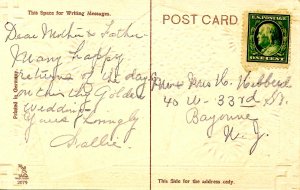 This Space for Writing Messages.
POST CARD
U.S. POSTAGE
ONE CENT
Dear Mother & Father
Many happy
returns of the day
within the Golden
wedding.
Yours lovingly
Sallie.
Mr & Mrs H. Hibberd
40 W- 33rd St.
Bayonne
N. J.
Printed in Germany
2076
This Side for the address only.